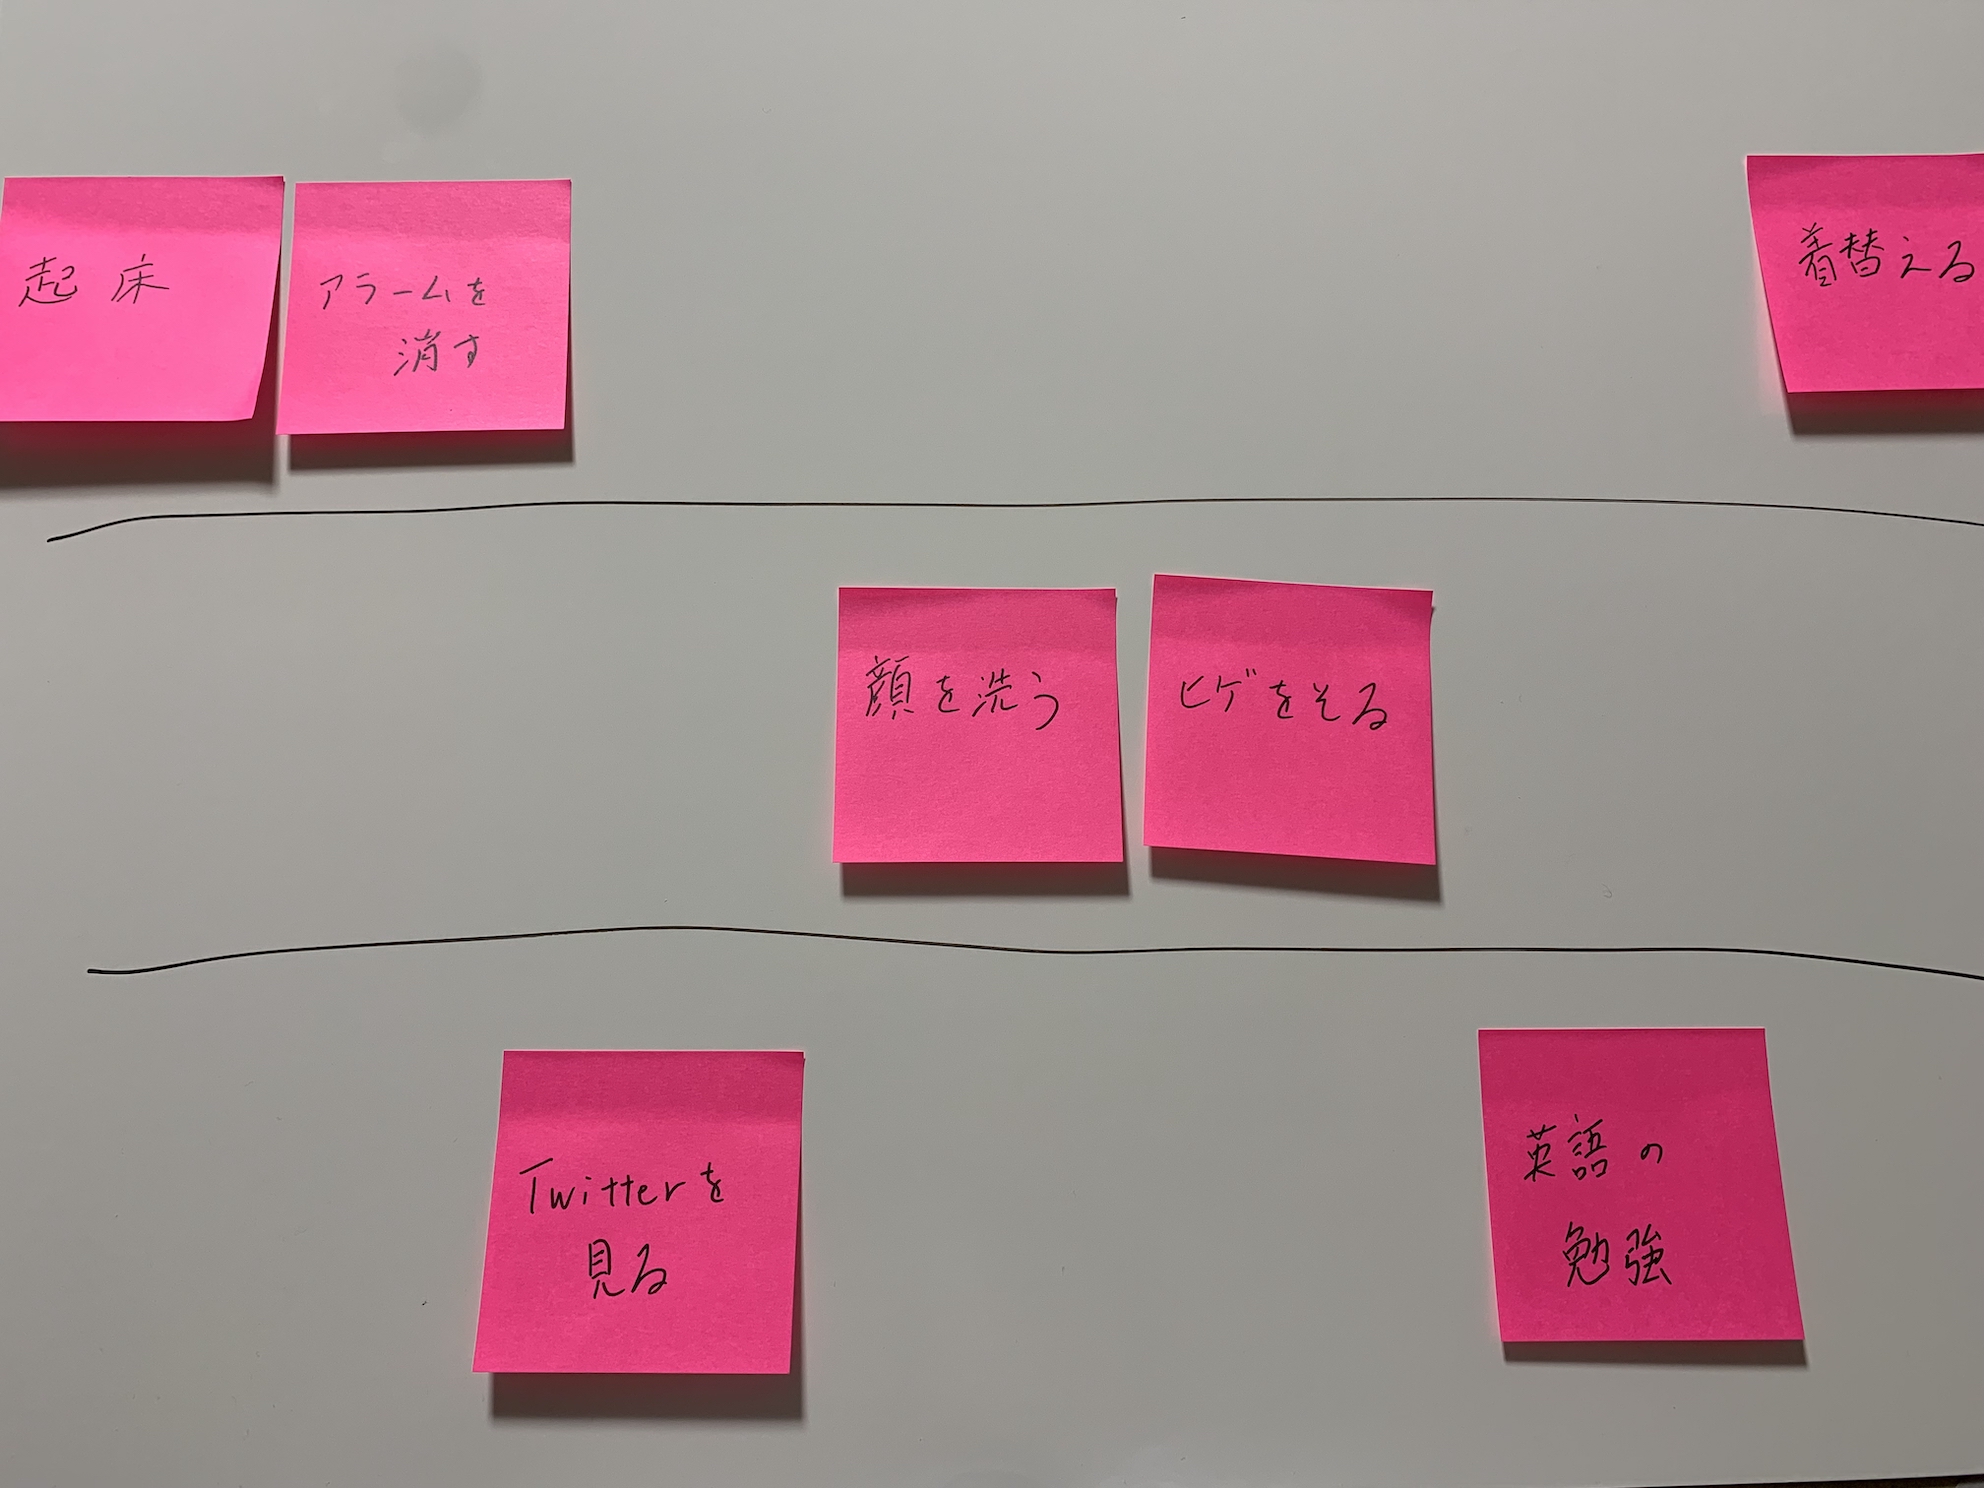 起床
アラームを
消す
着替える
顔を洗う
ヒゲをそる
Twitterを
見る
英語の
勉強